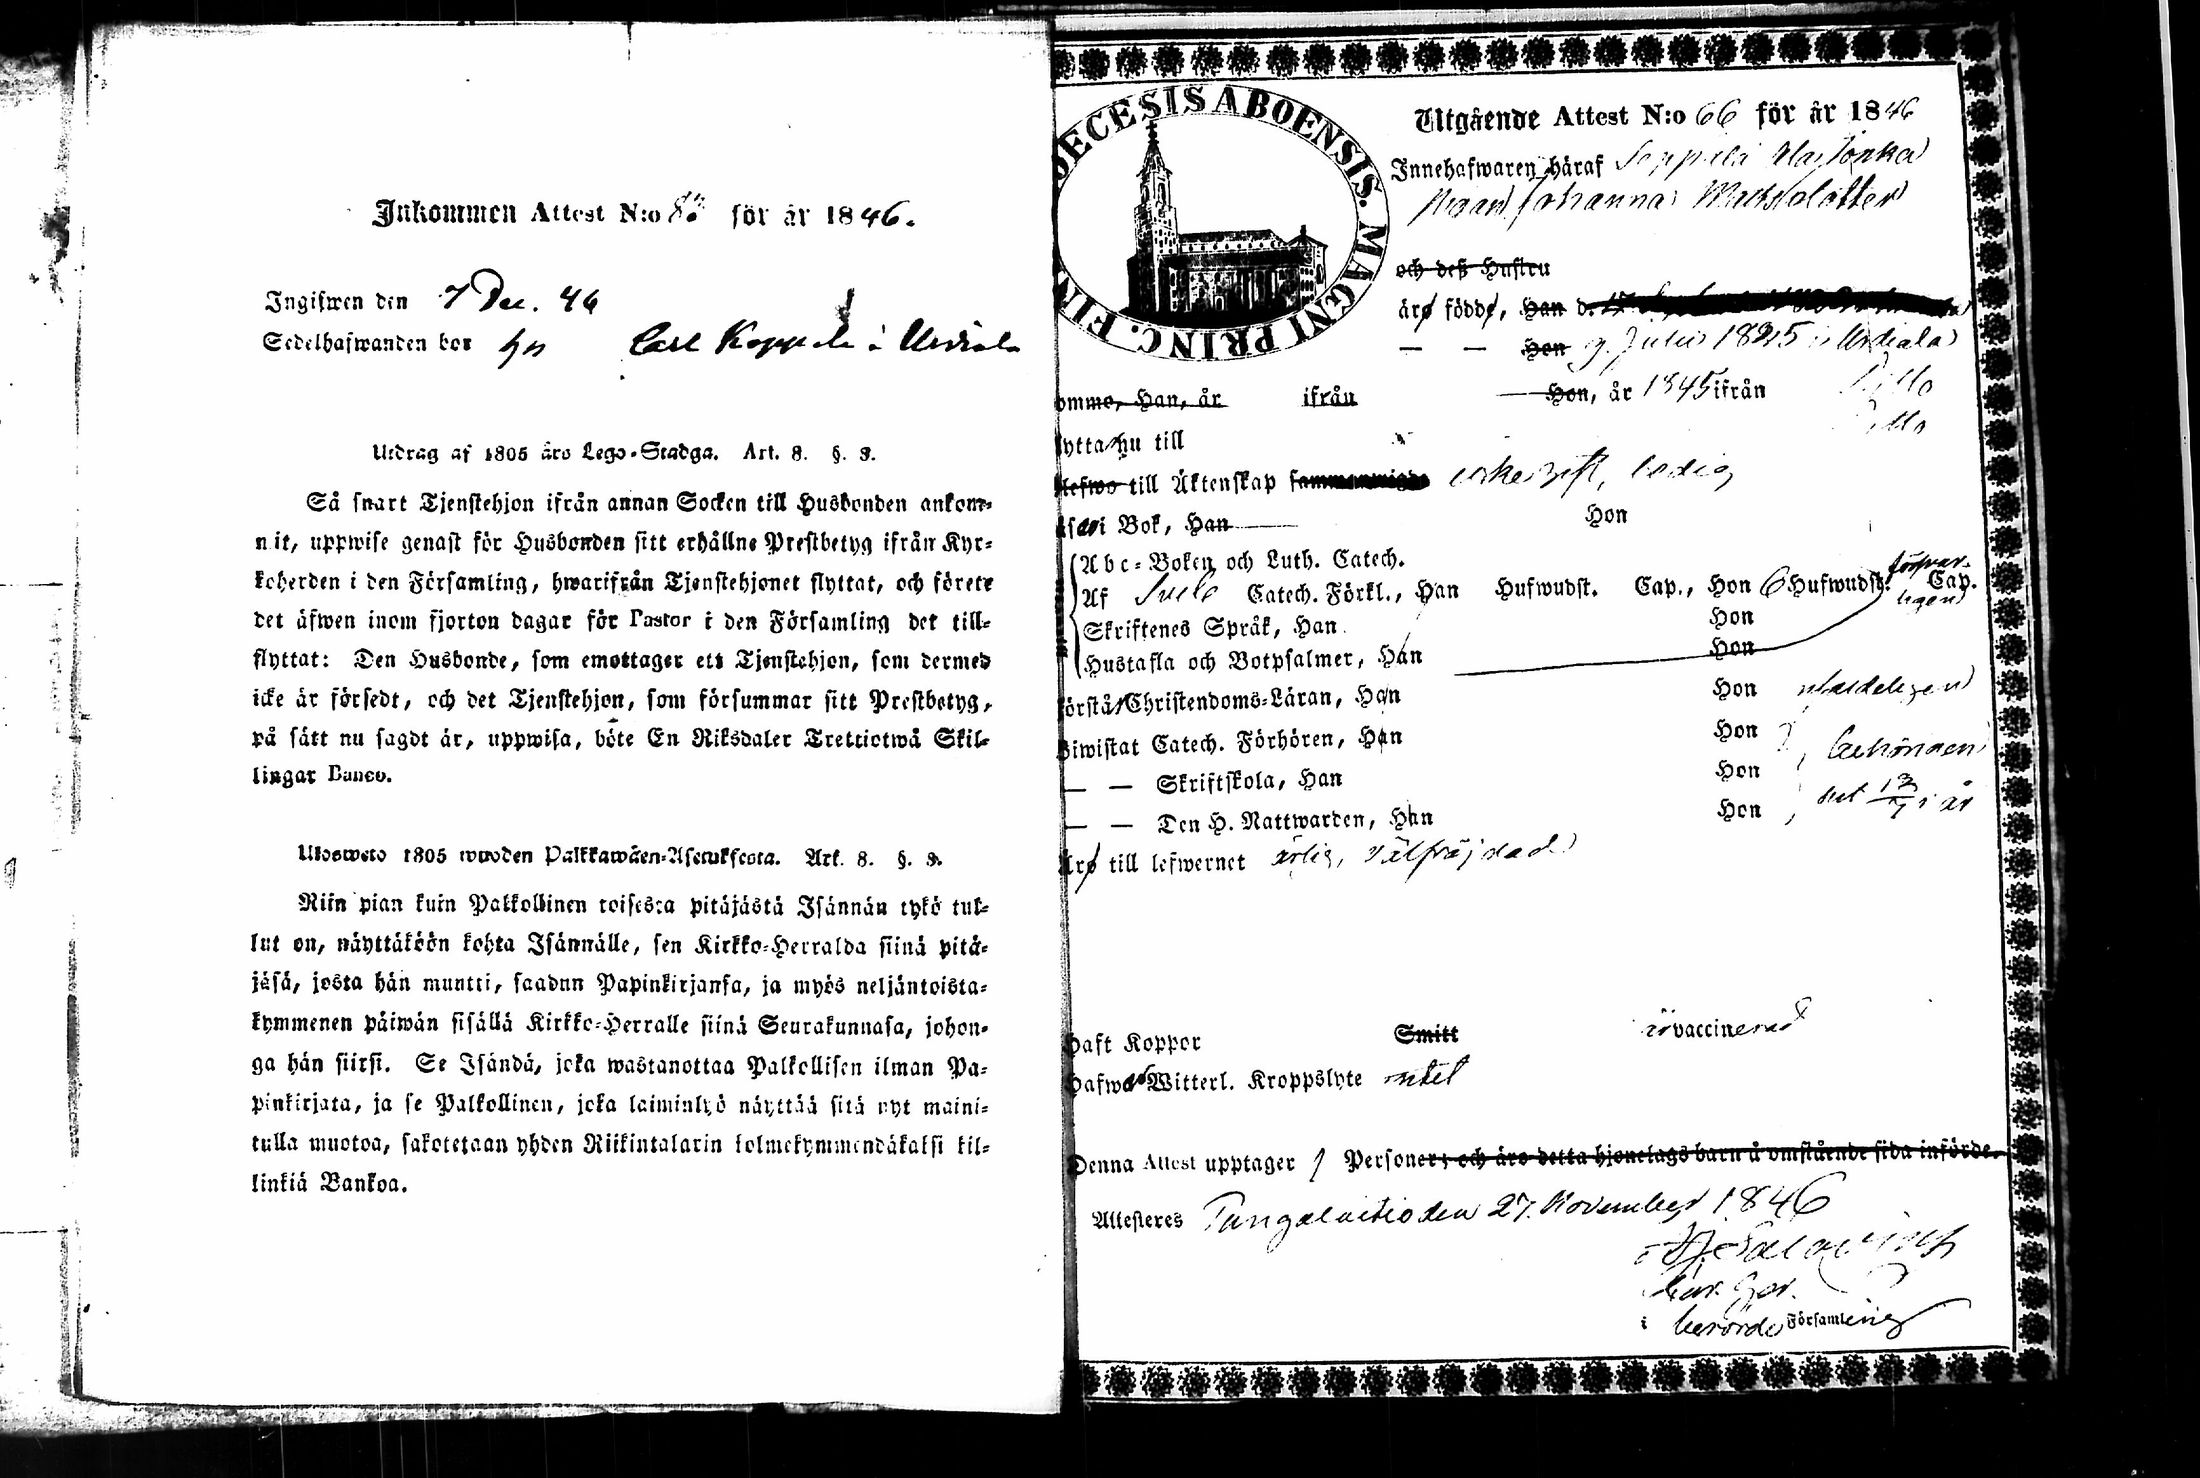 Inkommen Attest N:o för år 1846.
Ingifwen den 7 Dec. 46
Sedelhafwanden bor hos Carl i Urdiala
Utdrag af 1805 års Lego-Stadga. Art. 8. §. 3.
Så snart Tjenstehjon ifrån annan Socken till Husbonden ankom-
mit, uppwise genast för Husbonden sitt erhållne Prestbetyg ifrån Kyr-
koherden i den Församling, hwarifrån Tjenstehjonet flyttat, och förete
det äfwen inom fjorton dagar för Pastor i den Församling det till-
flyttat: Den Husbonde, som emottager ett Tjenstehjon, som dermed
icke är försedt, och det Tjenstehjon, som försummar sitt Prestbetyg,
på sätt nu sagdt är, uppwisa, böte En Riksdaler Trettiotwå Skil-
lingar Banco.
Ulosweto 1805 wuoden Palkkawäen-Asetuksesta. Art. 8. §. 3.
Niin pian kuin Palkollinen toisesta pitäjästä Isännän tykö tul-
lut on, näyttäköön kohta Isännälle, sen Kirkko-Herralda siinä pitä-
jäsä, josta hän muutti, saadun Papinkirjansa, ja myös neljäntoista-
kymmenen päiwän sisällä Kirkko-Herralle siinä Seurakunnasa, johon-
ga hän siirsi. Se Isändä, joka wastanottaa Palkollisen ilman Pa-
pinkirjata, ja se Palkollinen, joka laiminlyö näyttää sitä nyt maini-
tulla muotoa, sakotetaan yhden Riikintalarin kolmekymmendäkaksi kil-
linkiä Bankoa.
DECESIS ABOENSIS. MAGNI PRINC. FIN
Utgående Attest N:o 66 för år 1846
Innehafwaren häraf
Pigan Johanna Mattsdotter
och deß Hustru
äro födde, Han d. 17
— — Hon 9 Julii 1825 i Urdiala
omme, Han, år ifrån — Hon, år 1845 ifrån Ditto
lytta nu till Ditto
lefwo till Äktenskap sammanwigde icke gift, ledig
i Bok, Han Hon
Abc-Boken och Luth. Catech.
Af Svebe Catech. Förkl., Han Hufwudst. Cap., Hon 6 Hufwudst. Cap. förswarligen
Skriftenes Språk, Han Hon
Hustafla och Botpsalmer, Han Hon
förstå Christendoms-Läran, Han Hon
Biwistat Catech. Förhören, Han Hon behörigen
— — Skriftskola, Han Hon
— — Den H. Nattwarden, Han Hon i år
Äro till lefwernet ärlig, välfräjdad
Haft Koppor Smitt är vaccinerad
Hafwa Witterl. Kroppslyte intet
Denna Attest upptager 1 Personer; och äro detta hjonelags barn å omstående sida införde.
Attesteres Tungelaitio den 27. November 1846
i berörde Församling